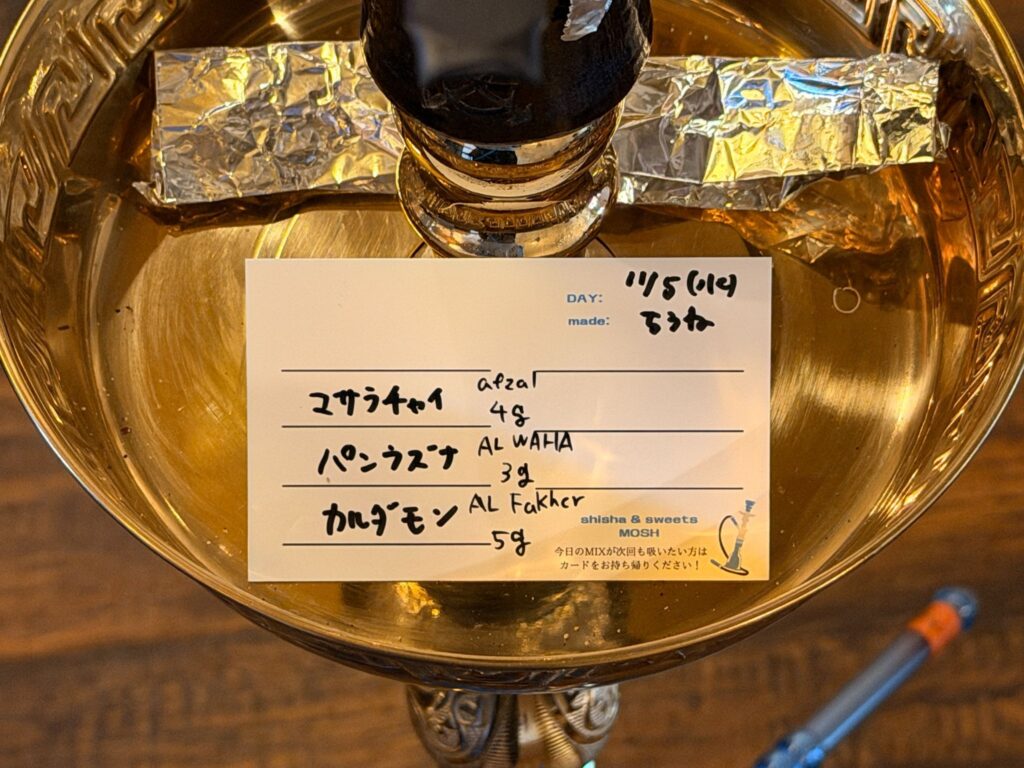 DAY: 11/5(水)
made: もうね
afzal
マサラチャイ 4g
AL WAHA
パンラズナ 3g
AL Fakher
カルダモン 5g
shisha & sweets
MOSH
今日のMIXが次回も吸いたい方は
カードをお持ち帰りください！